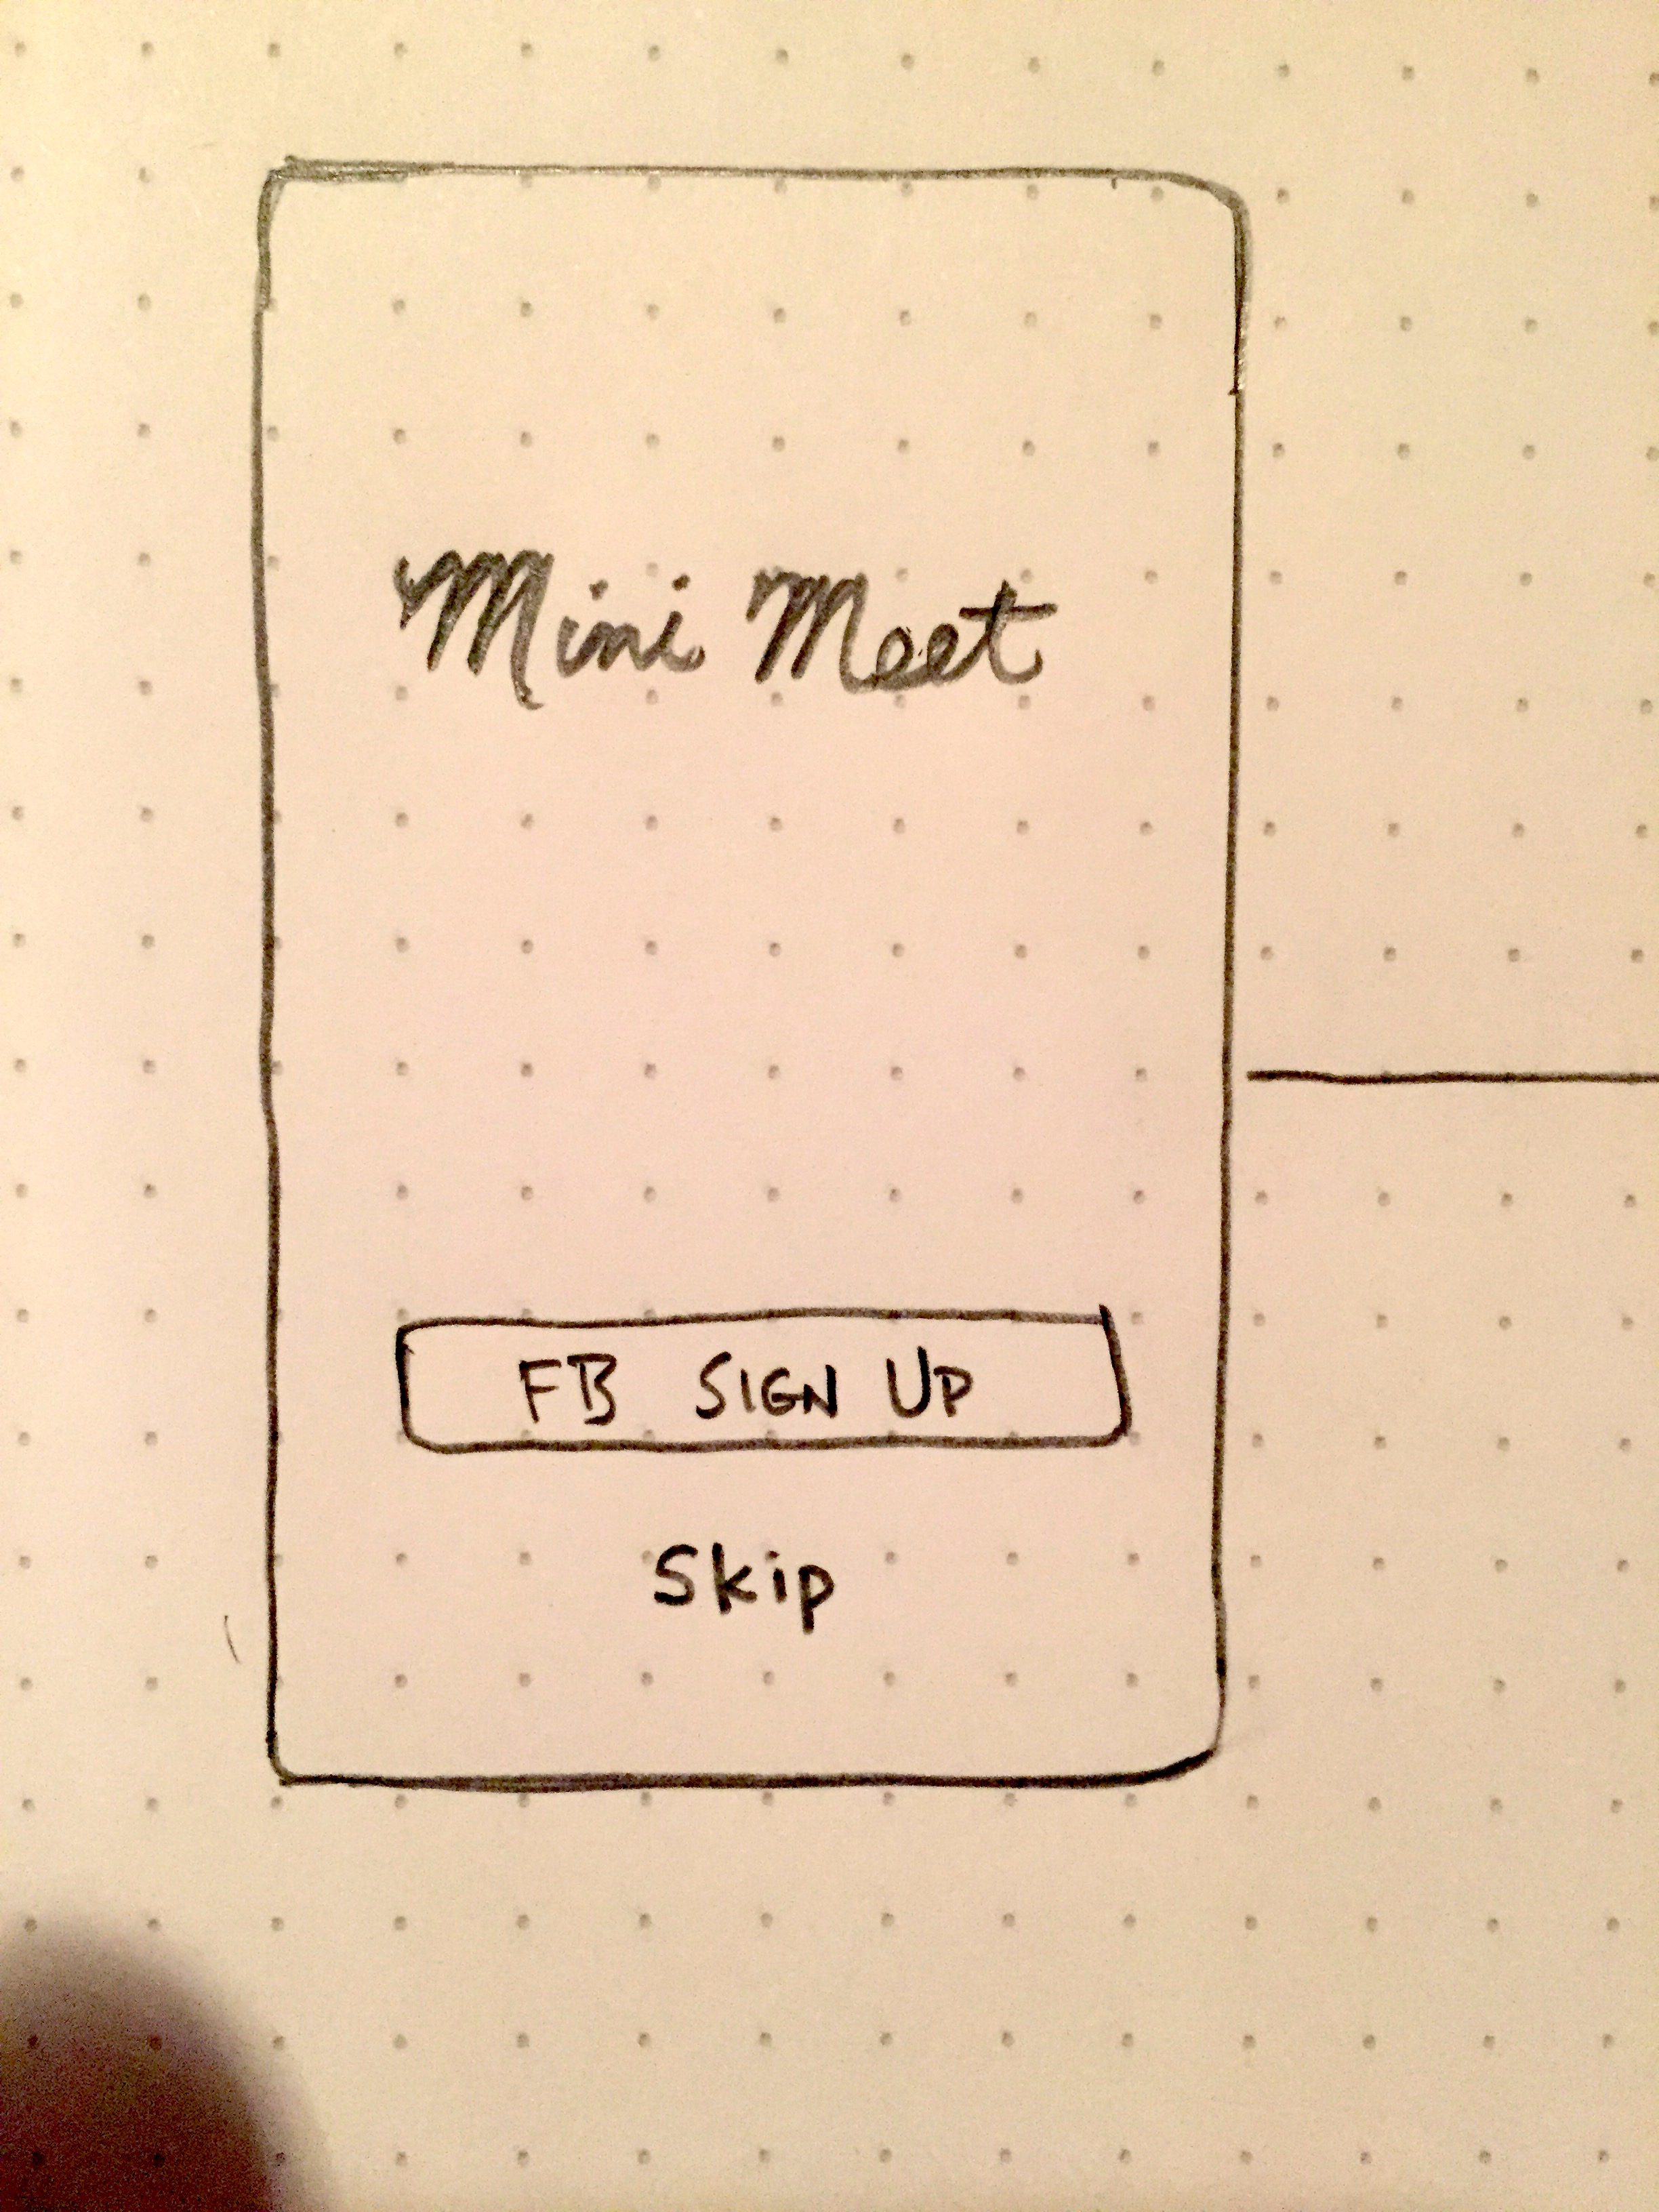 Mini Meet
FB SIGN UP
Skip